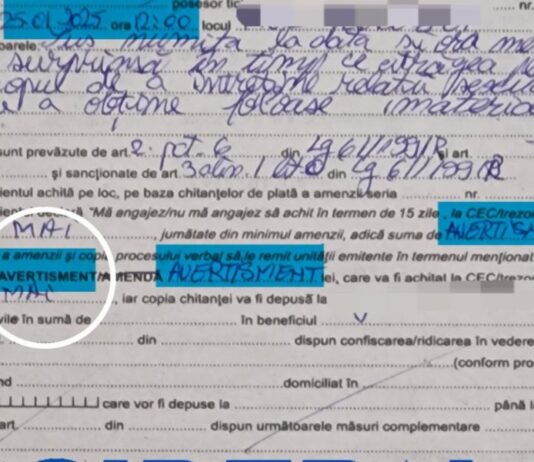 posesor
25.01.2025 ora 12:00 locul nr.
oarele: Sus numita la data și ora me
surprinsă în timp ce atragea pe
opul de a întreține relații sexu
a obține foloase materia
sunt prevăzute de art. 2. pct. 6 din Lg 61/1991/R și art.
și sancționate de art. 3 alin. 1 lit. din Lg 61/1991/R
ientul achită pe loc, pe baza chitanțelor de plată a amenzii seria nr.
"Mă angajez/nu mă angajez să achit în termen de 15 zile, la CEC/trezor
MAI, jumătate din minimul amenzii, adică suma de AVERTISM
a amenzii și copia procesului verbal să le remit unității emitente în termenul menționat
AVERTISMENT/AMENDĂ AVERTISMENT lei, care va fi achitat la CEC/trezo
MAI, iar copia chitanței va fi depusă la
vile în sumă de în beneficiul V
din dispun confiscarea/ridicarea în vedere
(conform pro
nd domiciliat în
care vor fi depuse la până la
art. din dispun următoarele măsuri complementare